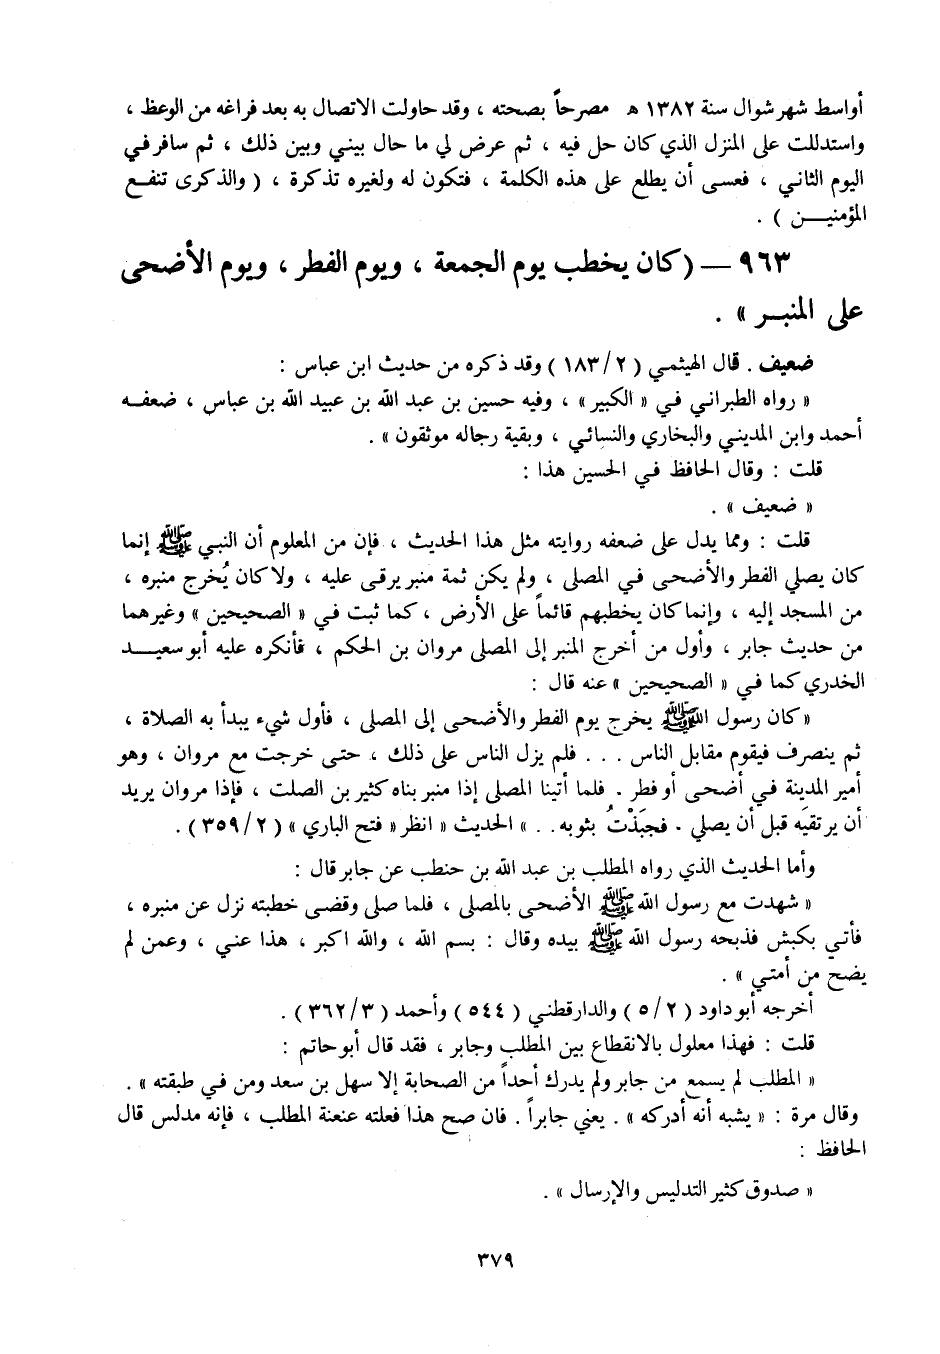 أواسط شهر شوال سنة ١٣٨٢ ه مصرحاً بصحته ، وقد حاولت الاتصال به بعد فراغه من الوعظ ،
واستدللت على المنزل الذي كان حل فيه ، ثم عرض لي ما حال بيني وبين ذلك ، ثم سافر في
اليوم الثاني ، فعسى أن يطلع على هذه الكلمة ، فتكون له ولغيره تذكرة ، ( والذكرى تنفع
المؤمنين ) .
٩٦٣ — ( كان يخطب يوم الجمعة ، ويوم الفطر ، ويوم الأضحى
على المنبر » .
ضعيف . قال الهيثمي ( ٢/١٨٣ ) وقد ذكره من حديث ابن عباس :
« رواه الطبراني في « الكبير » ، وفيه حسين بن عبد الله بن عبيد الله بن عباس ، ضعفه
أحمد وابن المديني والبخاري والنسائي ، وبقية رجاله موثقون » .
قلت : وقال الحافظ في الحسين هذا :
« ضعيف » .
قلت : ومما يدل على ضعفه روايته مثل هذا الحديث ، فإن من المعلوم أن النبي ﷺ إنما
كان يصلي الفطر والأضحى في المصلى ، ولم يكن ثمة منبر يرقى عليه ، ولا كان يُخرج منبره ،
من المسجد إليه ، وإنما كان يخطبهم قائماً على الأرض ، كما ثبت في « الصحيحين » وغيرهما
من حديث جابر ، وأول من أخرج المنبر إلى المصلى مروان بن الحكم ، فأنكره عليه أبو سعيد
الخدري كما في « الصحيحين » عنه قال :
« كان رسول الله ﷺ يخرج يوم الفطر والأضحى إلى المصلى ، فأول شيء يبدأ به الصلاة ،
ثم ينصرف فيقوم مقابل الناس . . . فلم يزل الناس على ذلك ، حتى خرجت مع مروان ، وهو
أمير المدينة في أضحى أو فطر . فلما أتينا المصلى إذا منبر بناه كثير بن الصلت ، فإذا مروان يريد
أن يرتقيَه قبل أن يصلي . فجبَذْتُ بثوبه . . » الحديث « انظر « فتح الباري » ( ٢/٣٥٩ ) .
وأما الحديث الذي رواه المطلب بن عبد الله بن حنطب عن جابر قال :
« شهدت مع رسول الله ﷺ الأضحى بالمصلى ، فلما صلى وقضى خطبته نزل عن منبره ،
فأتي بكبش فذبحه رسول الله ﷺ بيده وقال : بسم الله ، والله اكبر ، هذا عني ، وعمن لم
يضح من أمتي » .
أخرجه أبو داود ( ٢/٥ ) والدارقطني ( ٥٤٤ ) وأحمد ( ٣/٣٦٢ ) .
قلت : فهذا معلول بالانقطاع بين المطلب وجابر ، فقد قال أبو حاتم :
« المطلب لم يسمع من جابر ولم يدرك أحداً من الصحابة إلا سهل بن سعد ومن في طبقته » .
وقال مرة : « يشبه أنه أدركه » . يعني جابراً . فان صح هذا فعلته عنعنة المطلب ، فإنه مدلس قال
الحافظ :
« صدوق كثير التدليس والإرسال » .
٣٧٩